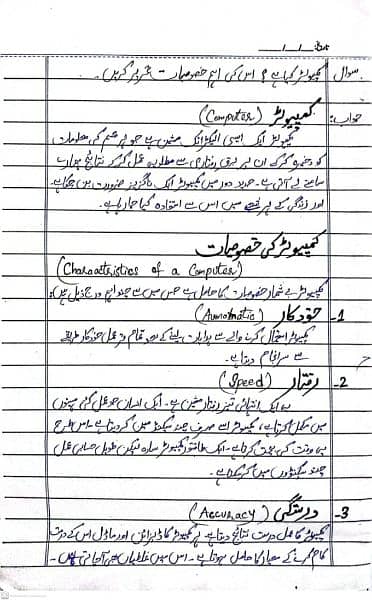 تاریخ __/__/__
سوال کمپیوٹر کیا ہے؟ اس کی اہم خصوصیات تحریر کریں۔
جواب: کمپیوٹر (Computer)
کمپیوٹر ایک ایسی الیکٹرانک مشین ہے جو ہر قسم کی معلومات
کو ذخیرہ کرکے ان پر برق رفتاری سے مطلوبہ عمل کرکے نتائج ہمارے
سامنے لے آتی ہے۔ جدید دور میں کمپیوٹر ایک ناگزیر ضرورت بن چکا ہے
اور زندگی کے ہر شعبے میں اس سے استفادہ کیا جا رہا ہے۔
کمپیوٹر کی خصوصیات
(Characteristics of a Computer)
کمپیوٹر بے شمار خصوصیات کا حامل ہے جس میں سے چند اہم درج ذیل ہیں:
1- خودکار (Automatic)
کمپیوٹر استعمال کرنے والے سے ہدایات لینے کے بعد تمام عمل خودکار طریقے
سے سرانجام دیتا ہے۔
2- رفتار (Speed)
یہ ایک انتہائی تیز رفتار مشین ہے۔ ایک انسان جو عمل کئی مہینوں
میں مکمل کرتا ہے، کمپیوٹر اسے صرف چند سیکنڈ میں کر دیتا ہے۔ اس طرح
یہ وقت کی بچت کرتا ہے۔ ایک طاقتور کمپیوٹر سادہ لیکن طویل حسابی عمل
چند سیکنڈوں میں کر سکتا ہے۔
3- درستگی (Accuracy)
کمپیوٹر کا عمل درست نتائج دیتا ہے۔ کمپیوٹر کا ڈیزائن اور ماڈل اس کے درست
کام کرنے کے معیار کا حامل ہوتا ہے۔ اس میں غلطیاں بھی آ جاتی ہیں۔